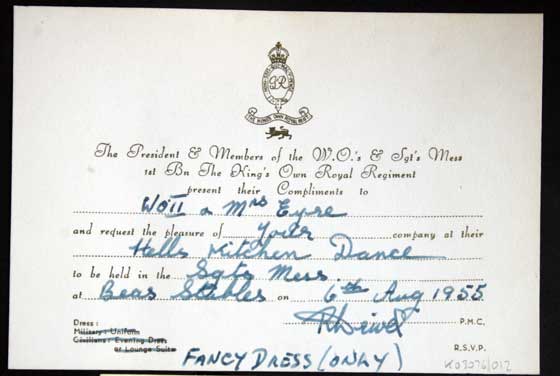 The President & Members of the W.O.'s & Sgt's Mess
1st Bn The King's Own Royal Regiment
present their Compliments to
WOII & Mrs Eyre
and request the pleasure of Your company at their
Hells Kitchen Dance
to be held in the Sgts Mess.
at Beas Stables on 6th Aug 1955
P.M.C.
Dress :
Military : Uniform
Civilians : Evening Dress
or Lounge Suite
R.S.V.P.
FANCY DRESS (ONLY)
KO3076/012